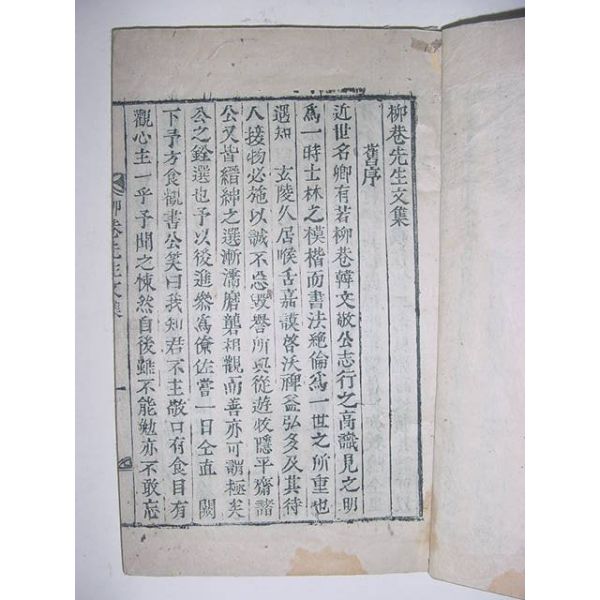 柳巷先生文集
舊序
近世名卿有若柳巷韓文敬公志行之高識見之明
爲一時士林之模楷而書法絶倫爲一世之所重也
遇知 玄陵久居喉舌嘉謨啓沃裨益弘多及其待
人接物必施以誠不忌毁譽所與從遊牧隱平齋諸
公又皆縉紳之選漸濡磨礱相觀而善亦可謂極矣
公之銓選也予以後進叅爲僚佐嘗一日仝直 闕
下予方食觀書公笑曰我知君不主敬口有食目有
觀心主一乎予聞之悚然自後雖不能勉亦不敢忘
柳巷先生文集 一